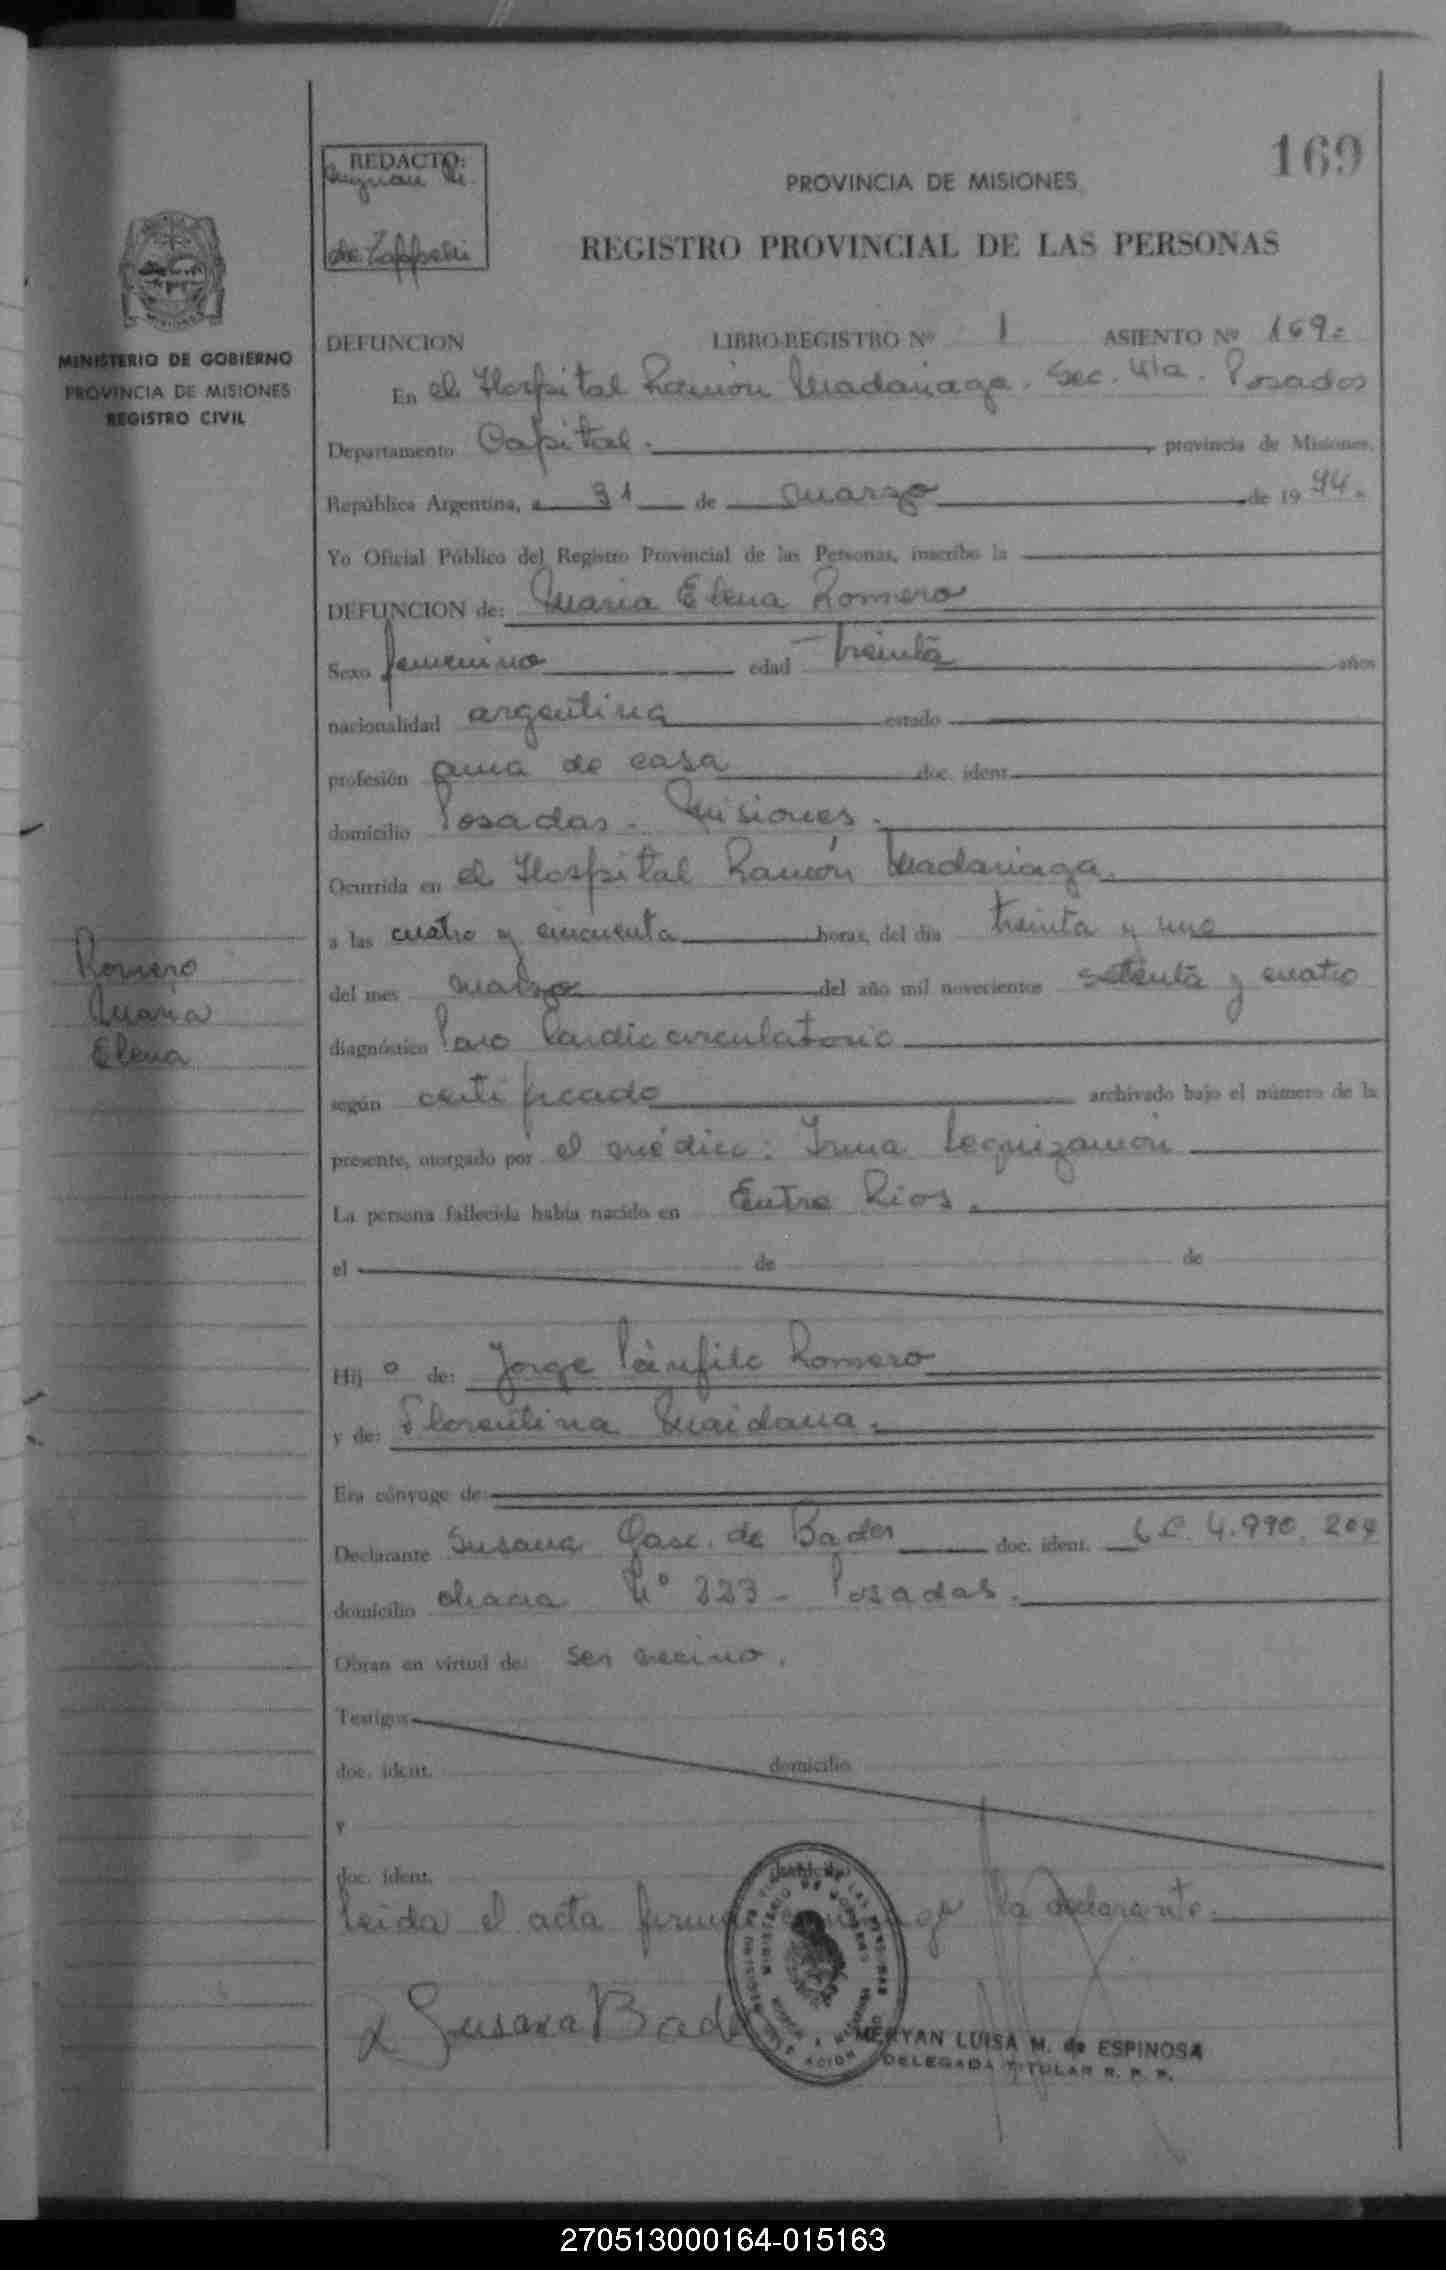 169
REDACTO:
de Zappelli
PROVINCIA DE MISIONES
REGISTRO PROVINCIAL DE LAS PERSONAS
MINISTERIO DE GOBIERNO
PROVINCIA DE MISIONES
REGISTRO CIVIL
DEFUNCION LIBRO-REGISTRO Nº 1 ASIENTO Nº 169.=
En el Hospital Ramón Madariaga. Sec. 4ta. Posadas
Departamento Capital. provincia de Misiones,
República Argentina, a 31 de marzo de 19 74.
Yo Oficial Público del Registro Provincial de las Personas, inscribo la
DEFUNCION de: Maria Elena Romero
Sexo femenino edad treinta años
nacionalidad argentina estado
profesión ama de casa doc. ident.
domicilio Posadas - Misiones.
Ocurrida en el Hospital Ramón Madariaga.
a las cuatro y cincuenta horas, del día treinta y uno
del mes marzo del año mil novecientos setenta y cuatro
diagnóstico Paro Cardio circulatorio
según certificado archivado bajo el número de la
presente, otorgado por el médico: Irma Leguizamón
La persona fallecida había nacido en Entre Rios.
el de de
Hij o de: Jorge Pánfilo Romero
y de: Florentina Maidana.
Era cónyuge de:
Declarante Susana de Bader doc. ident. L.C. 4.990.204
domicilio chacra Nº 223 - Posadas.
Obran en virtud de: ser vecino.
Testigos
doc. ident. domicilio
y
doc. ident.
leida el acta la declarante.
Susana Bader
MERYAN LUISA M. de ESPINOSA
DELEGADA TITULAR R. P. P.
Romero
Maria
Elena
270513000164-015163